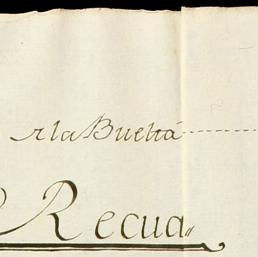 rla Buelta
Recua